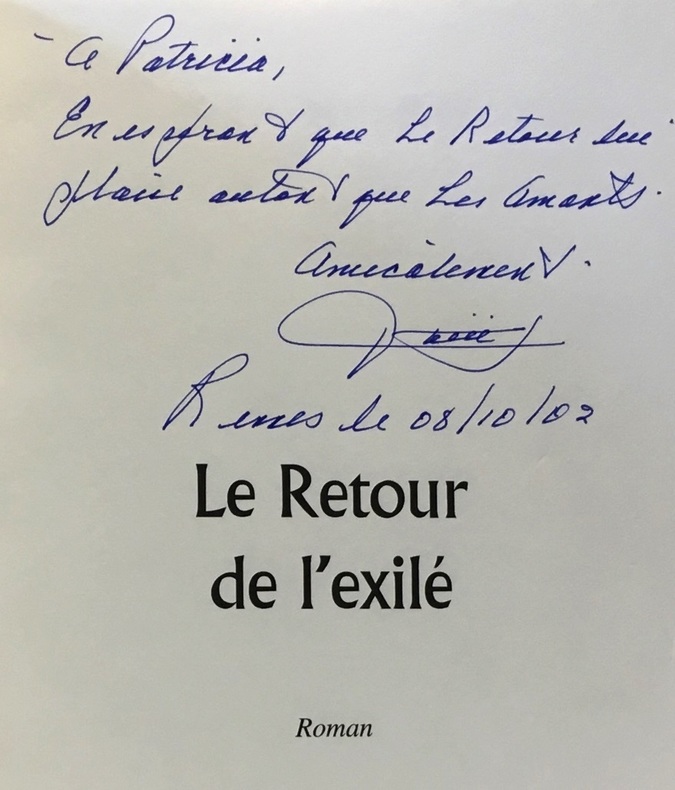 A Patricia,
En espérant que Le Retour lui
plaise autant que Les Amants.
Amicalement.
le 08/10/02
Le Retour
de l'exilé
Roman